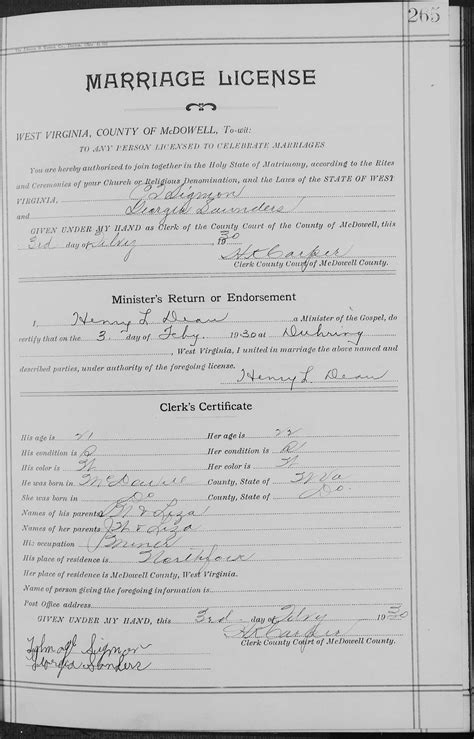 265
MARRIAGE LICENSE
WEST VIRGINIA, COUNTY OF McDOWELL, To-wit:
TO ANY PERSON LICENSED TO CELEBRATE MARRIAGES
You are hereby authorized to join together in the Holy State of Matrimony, according to the Rites
and Ceremonies of your Church or Religious Denomination, and the Laws of the STATE OF WEST
VIRGINIA, Sigmon
and Georgia Saunders
GIVEN UNDER MY HAND as Clerk of the County Court of the County of McDowell, this
3rd day of Feby 1930
Carper
Clerk County Court of McDowell County.
Minister's Return or Endorsement
I, Henry L Dean a Minister of the Gospel, do
certify that on the 3. day of Feby. 1930 at Duhring
, West Virginia, I united in marriage the above named and
described parties, under authority of the foregoing license.
Henry L. Dean
Clerk's Certificate
His age is 21 Her age is 22
His condition is S Her condition is S
His color is W Her color is W
He was born in McDowell County, State of W Va
She was born in Do County, State of Do.
Names of his parents & Liza
Names of her parents & Liza
His occupation Miner
His place of residence is Northfork
Her place of residence is McDowell County, West Virginia.
Name of person giving the foregoing information is
Post Office address
GIVEN UNDER MY HAND, this 3rd day of Feby 1930
Carper
Clerk County Court of McDowell County.
Sigmon
Georgia Sanders